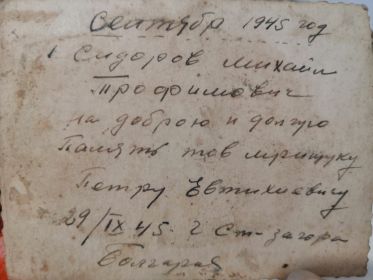 Сентябр 1945 год
Сидоров михаил
Трофимович
на доброю и долгую
Память тов
Петру Евтихиевичу
29/IX 45. г Ст-загора
Болгария